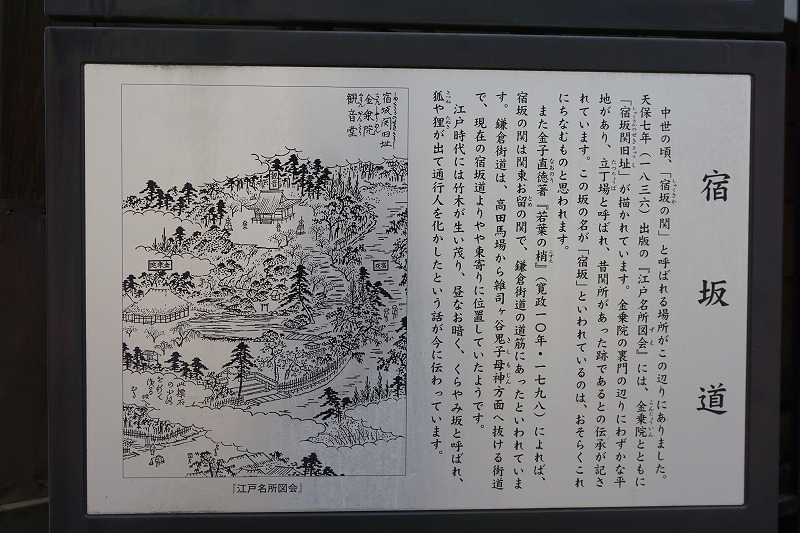 宿坂道
中世の頃、「宿坂の関」と呼ばれる場所がこの辺りにありました。
天保七年(一八三六)出版の『江戸名所図会』には、金乗院とともに
「宿坂関旧址」が描かれています。金乗院の裏門の辺りにわずかな平
地があり、立丁場と呼ばれ、昔関所があった跡であるとの伝承が記さ
れています。この坂の名が「宿坂」といわれているのは、おそらくこれ
にちなむものと思われます。
また金子直徳著『若葉の梢』(寛政一〇年・一七九八)によれば、
宿坂の関は関東お留の関で、鎌倉街道の道筋にあったといわれていま
す。鎌倉街道は、高田馬場から雑司ヶ谷鬼子母神方面へ抜ける街道
で、現在の宿坂道よりやや東寄りに位置していたようです。
江戸時代には竹木が生い茂り、昼なお暗く、くらやみ坂と呼ばれ、
狐や狸が出て通行人を化かしたという話が今に伝わっています。
宿坂関旧址
金乗院
観音堂
『江戸名所図会』